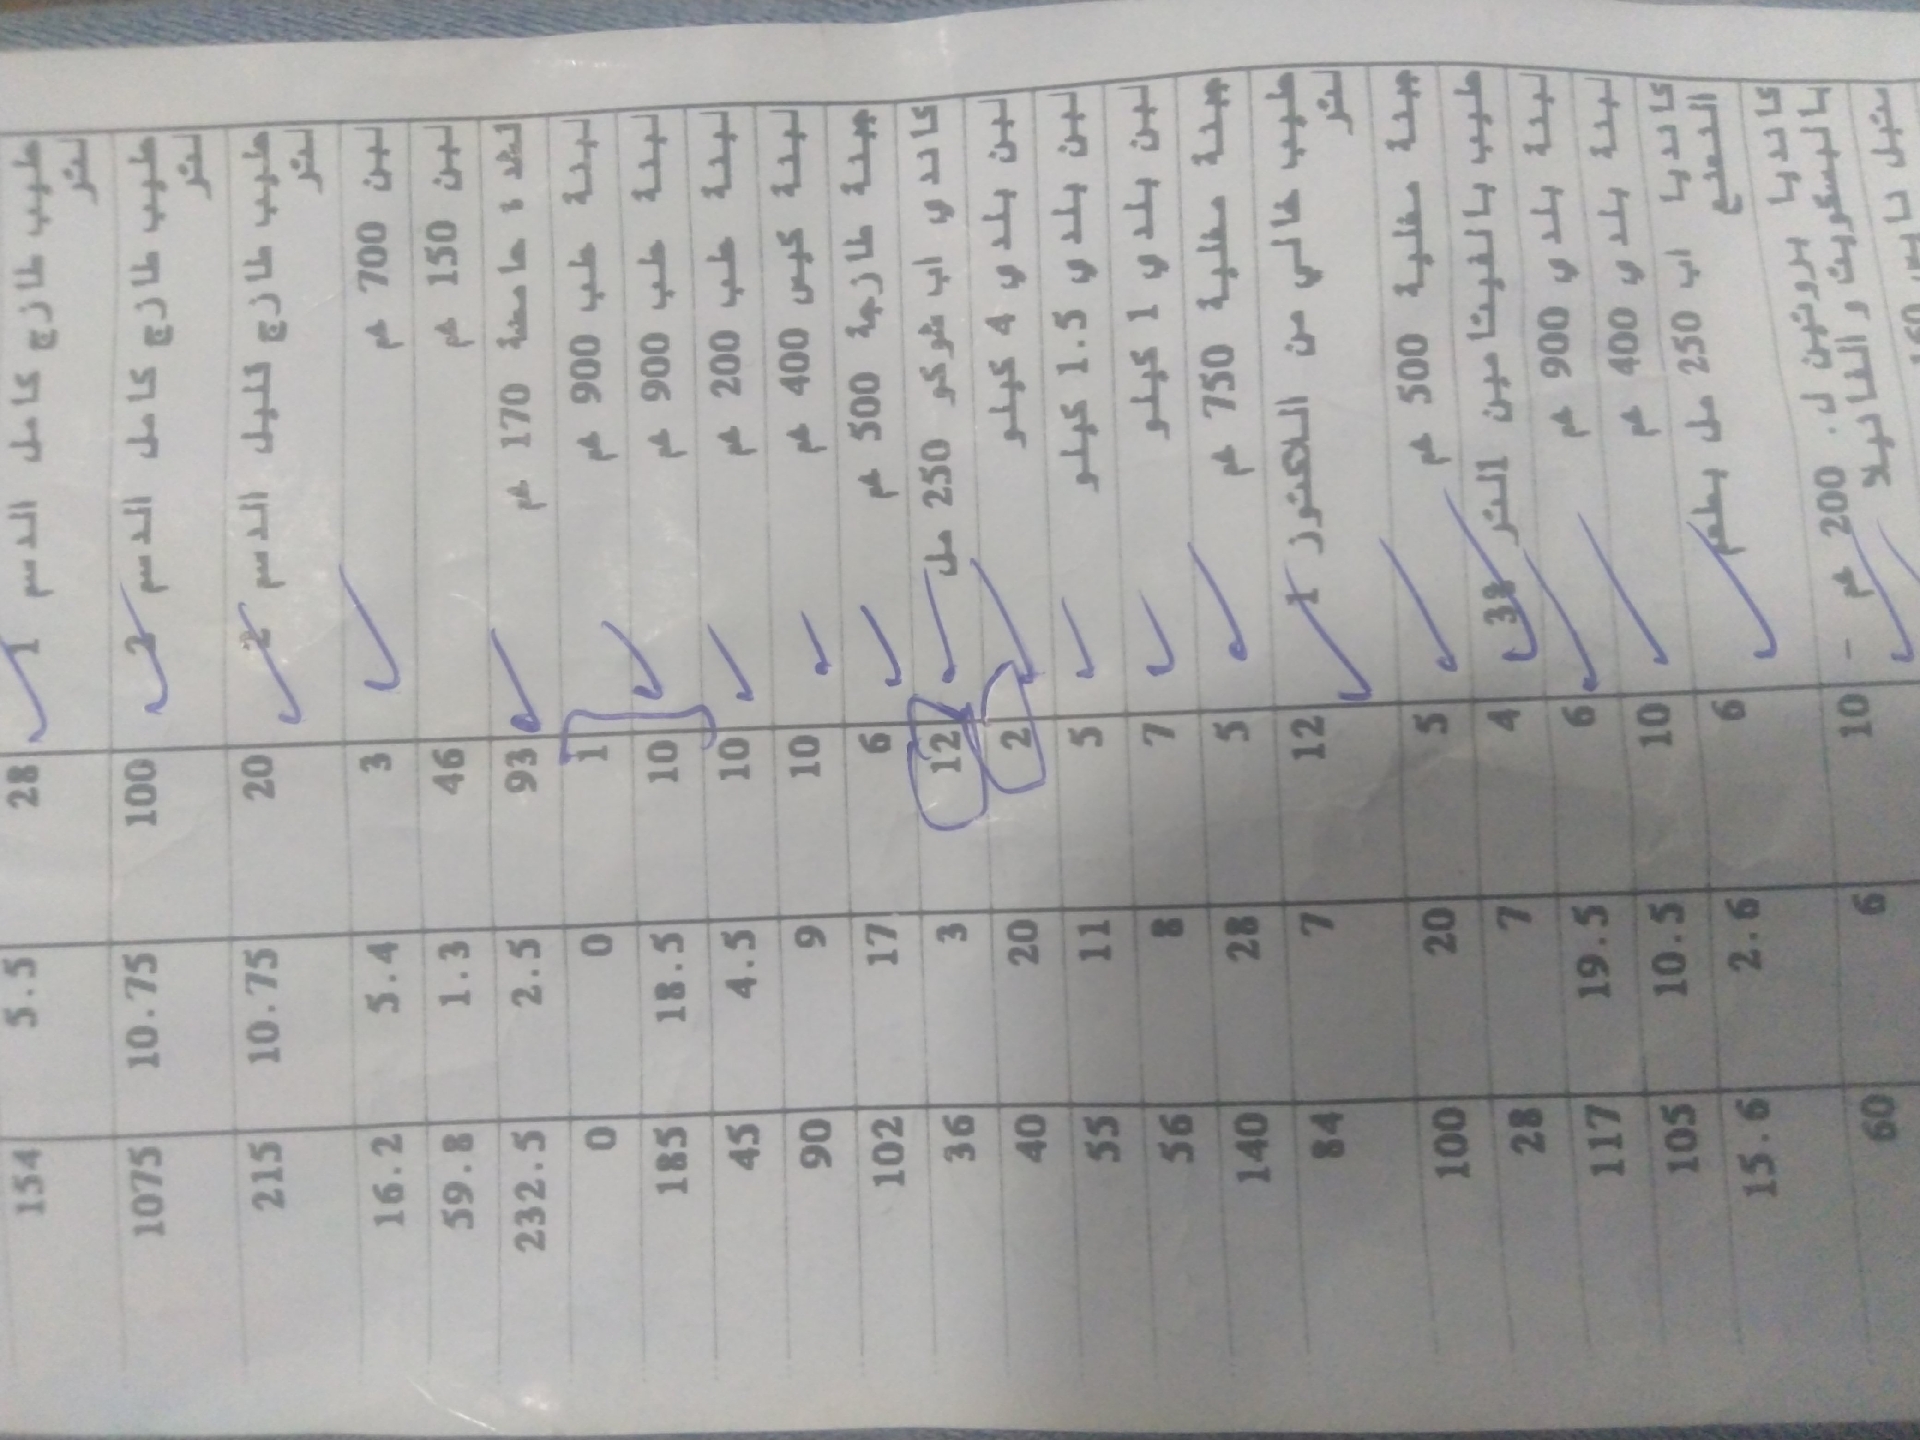 حليب طازج كامل الدسم 1 28 5.5 154
لتر
حليب طازج كامل الدسم 2 100 10.75 1075
لتر
حليب طازج قليل الدسم 2 20 10.75 215
لتر
لبن 700 غم 3 5.4 16.2
لبن 150 غم 46 1.3 59.8
حامضة 170 غم 93 2.5 232.5
لبنة علب 900 غم 1 0 0
لبنة علب 900 غم 10 18.5 185
لبنة علب 200 غم 10 4.5 45
لبنة كيس 400 غم 10 9 90
جبنة طازجة 500 غم 6 17 102
كاندي اب شوكو 250 مل 12 3 36
لبن بلدي 4 كيلو 2 20 40
لبن بلدي 1.5 كيلو 5 11 55
لبن بلدي 1 كيلو 7 8 56
جبنة مغلية 750 غم 5 28 140
حليب خالي من اللاكتوز 1 12 7 84
لتر
جبنة مغلية 500 غم 5 20 100
حليب بالفيتامين التر 4 7 28
لبنة بلدي 900 غم 6 19.5 117
لبنة بلدي 400 غم 10 10.5 105
كانديا اب 250 مل بطعم 6 2.6 15.6
كانديا بروتين ل. 200 غم - 10 6 60
بالبسكويت والفانيلا